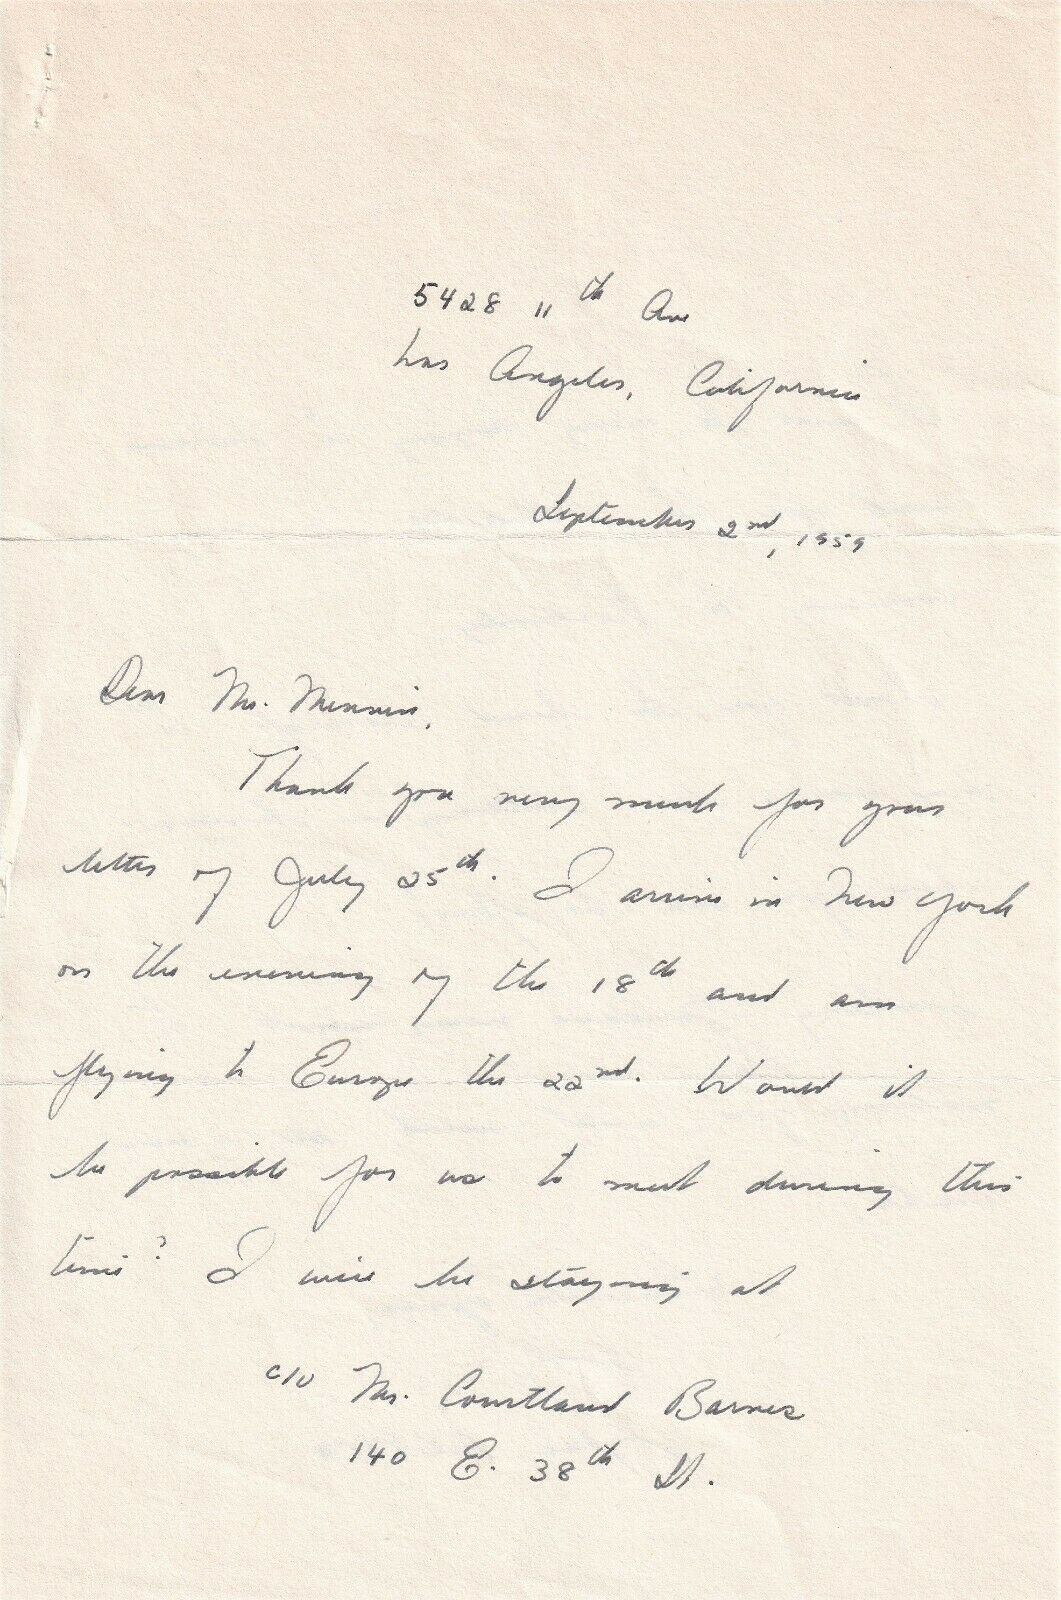 5428 11th Ave
Los Angeles, California
September 2nd, 1959
Dear Mr. Mennin,
Thank you very much for your
letter of July 25th. I arrive in New York
on the evening of the 18th and am
flying to Europe the 22nd. Would it
be possible for us to meet during this
time? I will be staying at
c/o Mr. Courtland Barnes
140 E. 38th St.